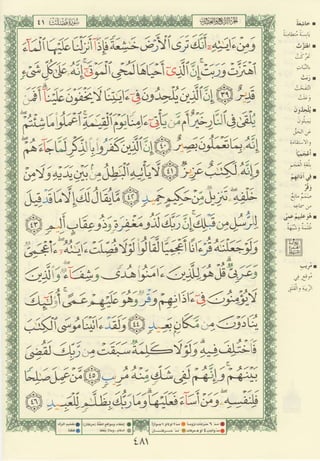 سُورَةُ فُصِّلَتْ ٤١
وَمِنْ ءَايَٰتِهِۦٓ أَنَّكَ تَرَى ٱلْأَرْضَ خَٰشِعَةً فَإِذَآ أَنزَلْنَا عَلَيْهَا ٱلْمَآءَ
ٱهْتَزَّتْ وَرَبَتْ إِنَّ ٱلَّذِىٓ أَحْيَاهَا لَمُحْىِ ٱلْمَوْتَىٰٓ إِنَّهُۥ عَلَىٰ كُلِّ شَىْءٍ
قَدِيرٌ ٣٩ إِنَّ ٱلَّذِينَ يُلْحِدُونَ فِىٓ ءَايَٰتِنَا لَا يَخْفَوْنَ عَلَيْنَآ أَفَمَن
يُلْقَىٰ فِى ٱلنَّارِ خَيْرٌ أَم مَّن يَأْتِىٓ ءَامِنًا يَوْمَ ٱلْقِيَٰمَةِ ٱعْمَلُوا۟ مَا شِئْتُمْ
إِنَّهُۥ بِمَا تَعْمَلُونَ بَصِيرٌ ٤٠ إِنَّ ٱلَّذِينَ كَفَرُوا۟ بِٱلذِّكْرِ لَمَّا جَآءَهُمْ
وَإِنَّهُۥ لَكِتَٰبٌ عَزِيزٌ ٤١ لَّا يَأْتِيهِ ٱلْبَٰطِلُ مِنۢ بَيْنِ يَدَيْهِ وَلَا مِنْ
خَلْفِهِۦ تَنزِيلٌ مِّنْ حَكِيمٍ حَمِيدٍ ٤٢ مَّا يُقَالُ لَكَ إِلَّا مَا قَدْ قِيلَ
لِلرُّسُلِ مِن قَبْلِكَ إِنَّ رَبَّكَ لَذُو مَغْفِرَةٍ وَذُو عِقَابٍ أَلِيمٍ ٤٣
وَلَوْ جَعَلْنَٰهُ قُرْءَانًا أَعْجَمِيًّا لَّقَالُوا۟ لَوْلَا فُصِّلَتْ ءَايَٰتُهُۥٓ ءَا۬عْجَمِىٌّ
وَعَرَبِىٌّ قُلْ هُوَ لِلَّذِينَ ءَامَنُوا۟ هُدًى وَشِفَآءٌ وَٱلَّذِينَ
لَا يُؤْمِنُونَ فِىٓ ءَاذَانِهِمْ وَقْرٌ وَهُوَ عَلَيْهِمْ عَمًى أُو۟لَٰٓئِكَ
يُنَادَوْنَ مِن مَّكَانٍۭ بَعِيدٍ ٤٤ وَلَقَدْ ءَاتَيْنَا مُوسَى ٱلْكِتَٰبَ
فَٱخْتُلِفَ فِيهِ وَلَوْلَا كَلِمَةٌ سَبَقَتْ مِن رَّبِّكَ لَقُضِىَ
بَيْنَهُمْ وَإِنَّهُمْ لَفِى شَكٍّ مِّنْهُ مُرِيبٍ ٤٥ مَّنْ عَمِلَ صَٰلِحًا
فَلِنَفْسِهِۦ وَمَنْ أَسَآءَ فَعَلَيْهَا وَمَا رَبُّكَ بِظَلَّٰمٍ لِّلْعَبِيدِ ٤٦
٤٨١
خَاشِعَةً
اهْتَزَّتْ
رَبَتْ
يُلْحِدُونَ
أَعْجَمِيًّا
فِي آذَانِهِمْ
وَقْرٌ
مُرِيبٍ